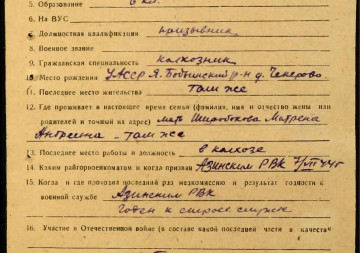 5. Образование 6 кл.
6. На ВУС
7. Должностная квалификация призывник
8. Военное звание
9. Гражданская специальность колхозник
10. Место рождения УАССР Я. Бодьинский р-н д. Чекерово
11. Последнее место жительства там же
12. Где проживает в настоящее время семья (фамилия, имя и отчество жены или
родителей и точный на адрес) мать Широбокова Матрена
Андреевна - там же
13. Последнее место работы и должность в колхозе
14. Каким райгорвоенкоматом и когда призван Азинским РВК 7/VII 44г
15. Когда и где проходил последний раз медкомиссию и результат годности к
военной службе Азинским РВК
годен к строев. службе
16. Участие в Отечественной войне (в составе какой последней части в качеств